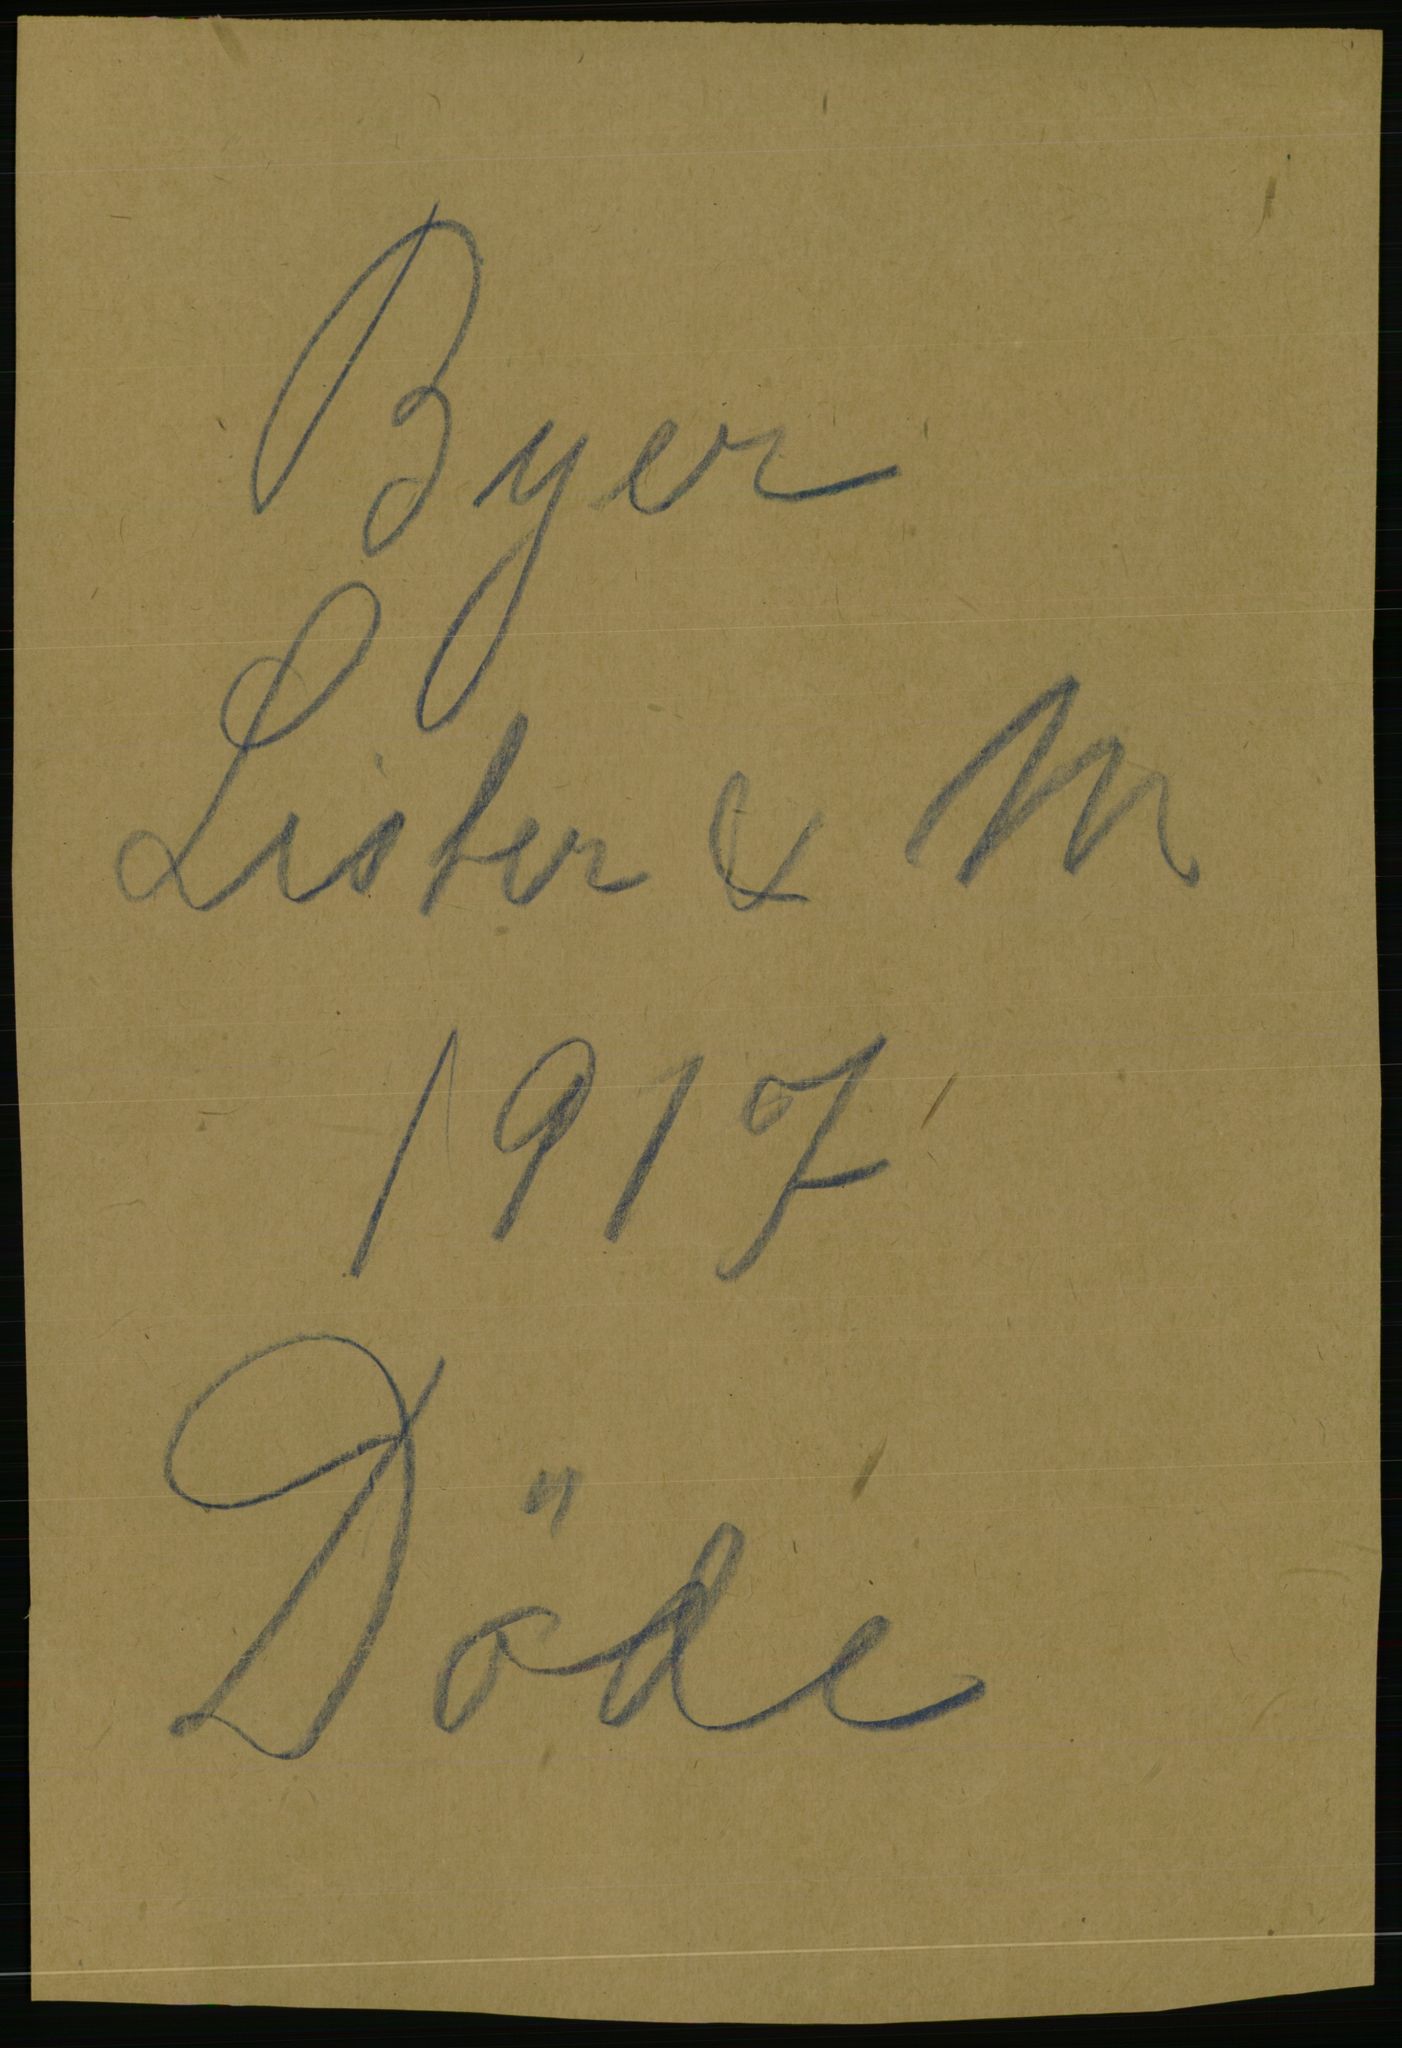 Byer
Lister & M
1917
Döde